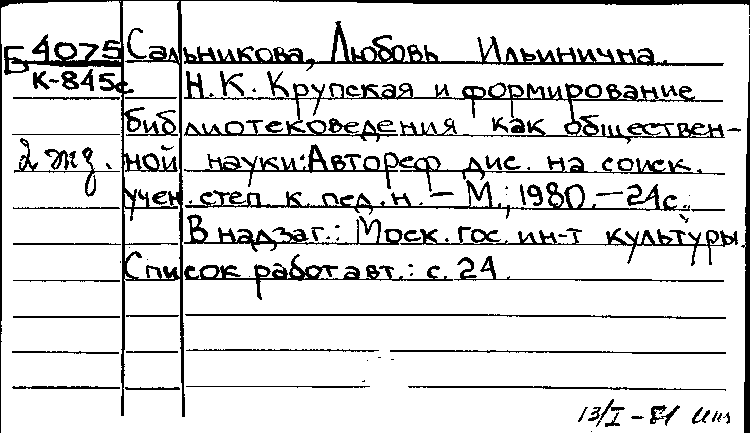 Б 4075 Сальникова, Любовь Ильинична.
К-845с Н.К. Крупская и формирование
библиотековедения как обществен-
2 экз. ной науки: Автореф дис. на соиск.
учен. степ к. пед. н. – М., 1980. – 24с.
В надзаг.: Моск. гос. ин-т культуры.
Список работ авт.: с. 24.
13/I – 81